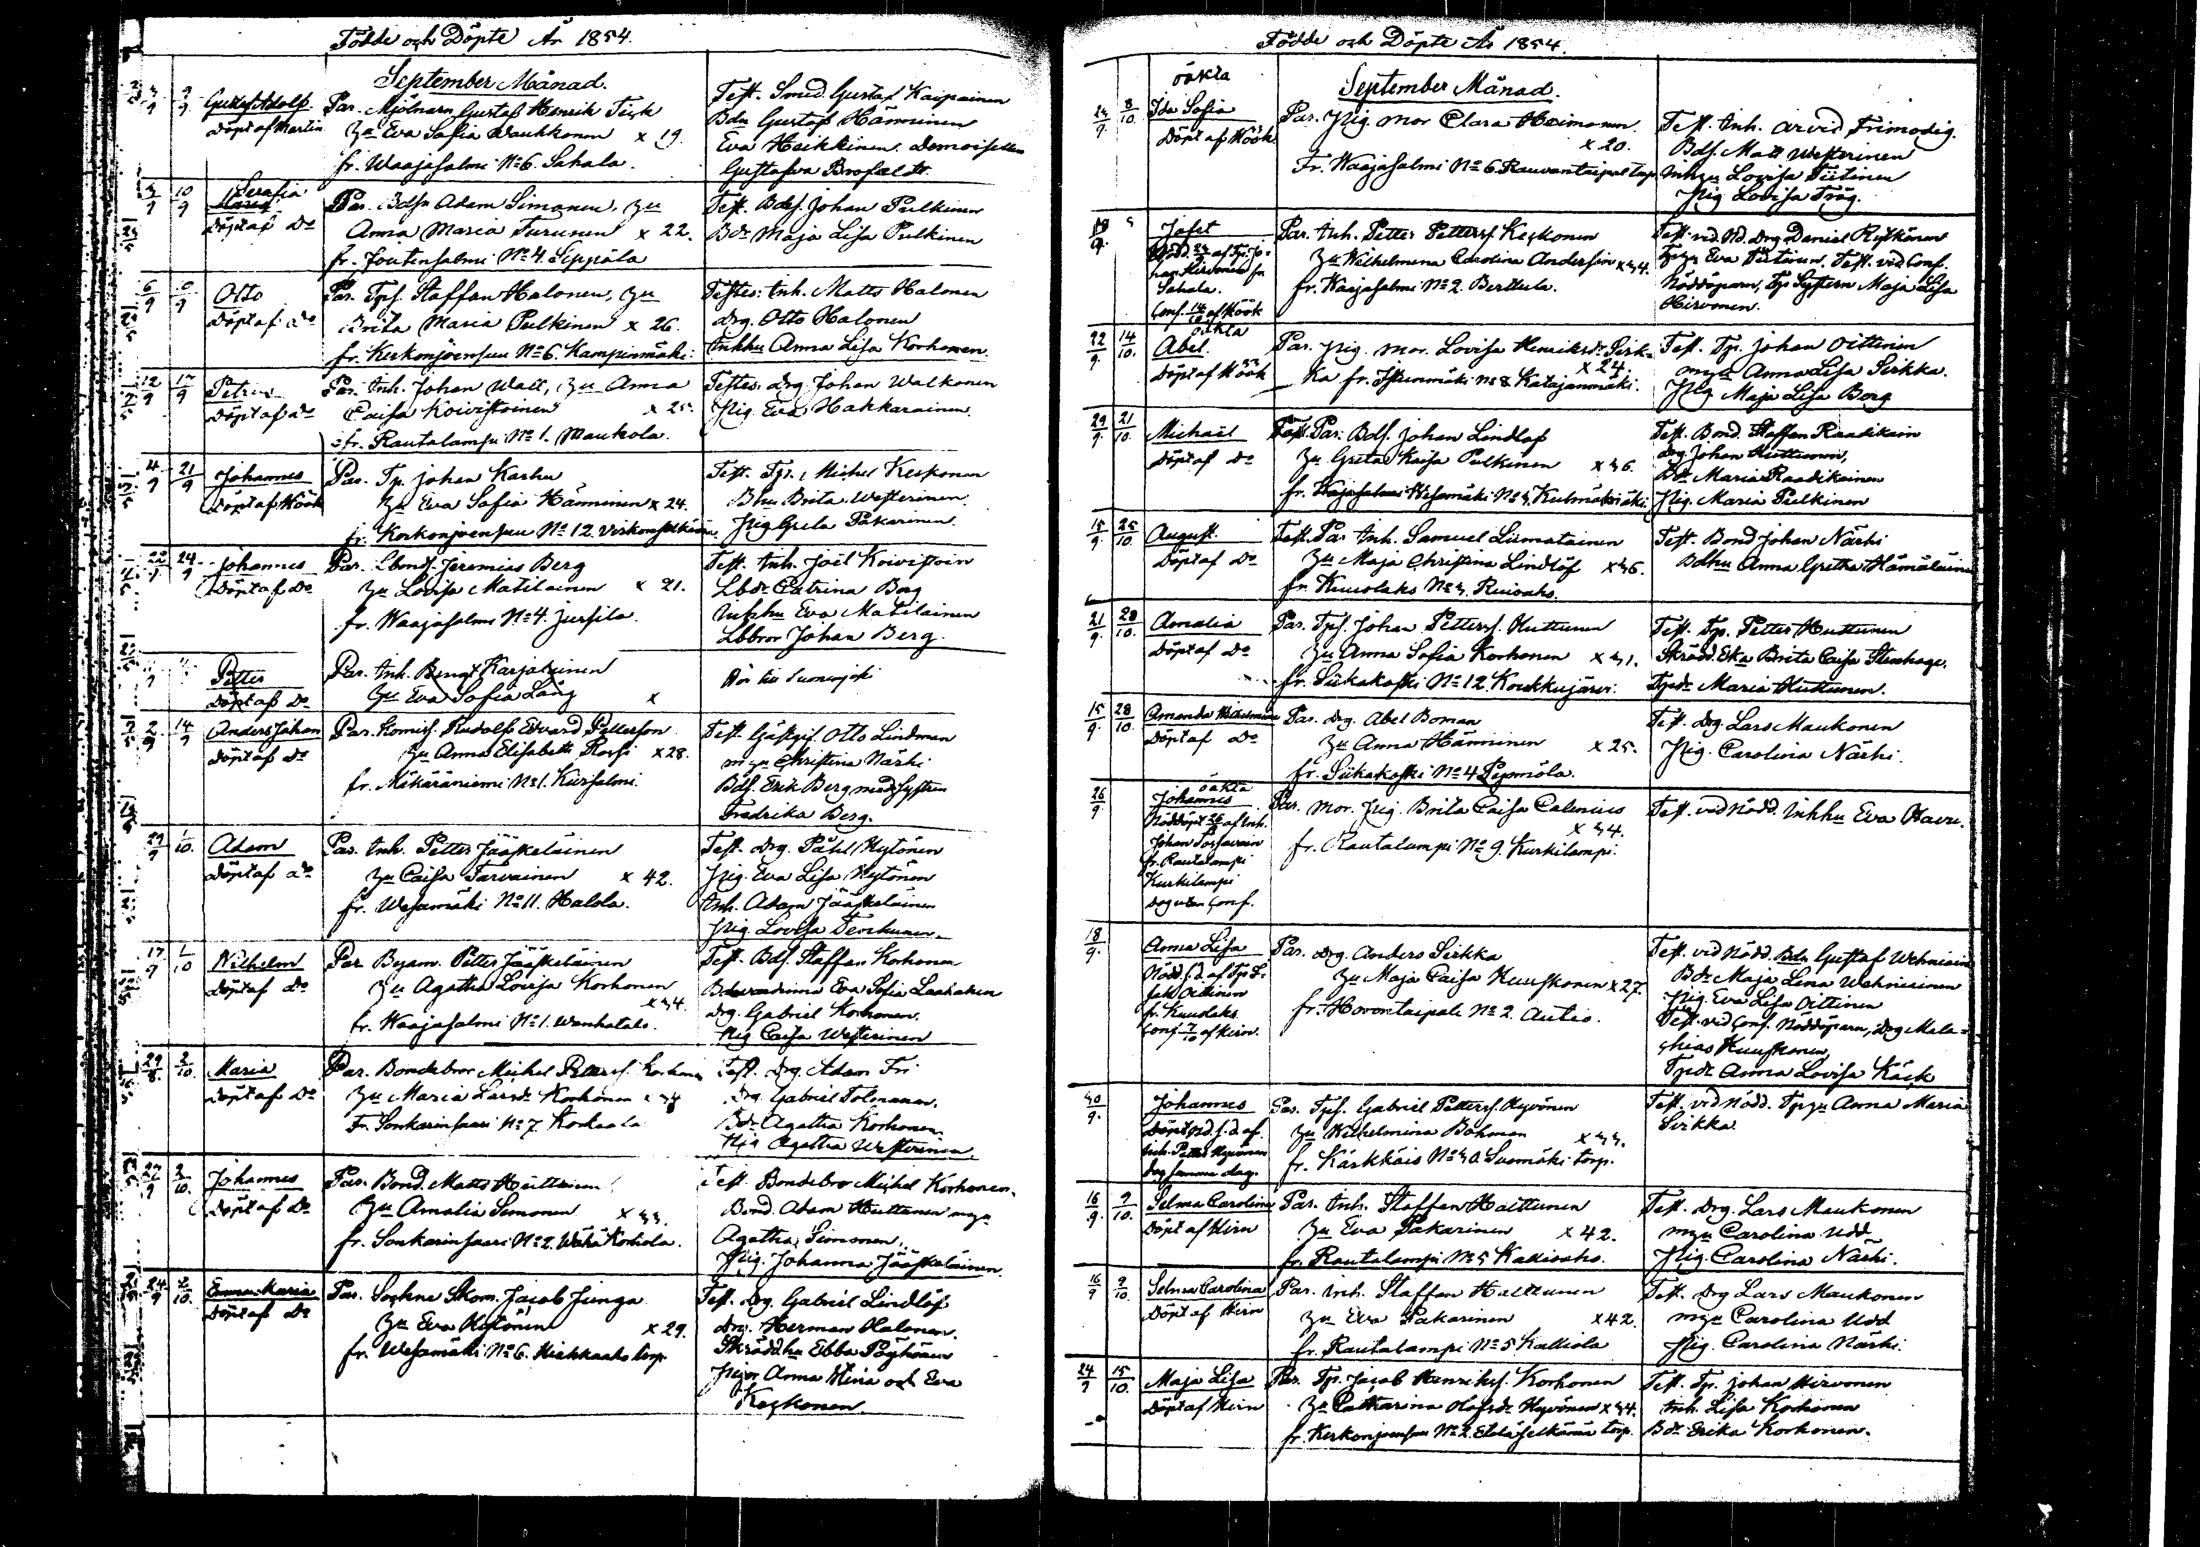 Födde och Döpte År 1854.
September Månad.
3/9 9/9 Gustaf Adolf Par. Mjölnarn Gustaf Henrik Tick Test. Smed. Gustaf Kaipainen
Döpt af Martin hu Eva Sofia Waukkonen x 19. Bdn Gustaf Hänninen
fr. Waajasalmi No 6. Sahala. Eva Heikkinen. Demoisellen
Gustafva Brofeldt.
10/9 Serafia Par. Bdsn Adam Simonen, hu Test. Bds. Johan Pulkinen
Maria
Döpt af Do Anna Maria Turunen x 22. Bdr Maja Lisa Pulkinen
fr. Joutensalmi No 4. Seppälä
6/9 10/9 Otto Par. Tps. Staffan Halonen, hu Testes: Inh. Matts Halonen
Döpt af do Brita Maria Pulkinen x 26. drg. Otto Halonen
fr. Kerkonjoensuu No 6. Kampinmäki. Inhhu Anna Lisa Korhonen.
12/9 17/9 Petrus Par. Inh. Johan Walt, hu Anna Testes: drg. Johan Walkonen
Döpt af do Caisa Koivistoinen x 25. Pig. Eva Hakkarainen.
fr. Rautalampi No 1. Maukola.
4/9 21/9 Johannes Par. Tp. Johan Karhu Test. Tps. Michel Keskonen
Döpt af Höök hu Eva Sofia Hänninen x 24. Bhu Brita Westerinen.
fr. Kerkonjoensuu No 12. Pig Greta Pakarinen.
22/9 24/9 Johannes Par. Lbond. Jeremias Berg Test. Inh. Joël Koivistoin
Döpt af Do hu Lovisa Matilainen x 21. Lbdr Catrina Berg
fr. Waajasalmi No 4. Jussila. Inhhu Eva Matilainen
Lbbror Johan Berg.
Petter Par. Inh. Bengt Karjalainen
Döpt af Do hu Eva Sofia Lång x
2/9 14/9 Anders Johan Par. Komiss. Rudolf Edvard Petterson Test. Gästgif. Otto Lindman
Döpt af Do hu Anna Elisabeth Rossi x 28. m hu Christina Närhi
fr. Mäkäräniemi No 1. Kiesalmi. Bds. Erik Berg med Systren
Fredrika Berg.
29/9 1/10. Adam Par. Inh. Petter Jääskeläinen Test. drg. Påhl Hytönen
Döpt af do hu Caisa Tarvainen x 42. Pig. Eva Lisa Hytönen
fr. Wesamäki No 11. Halola. Inh. Adam Jääskeläinen
Pig. Lovisa
17/9 1/10 Wilhelm Par Byam. Petter Jääskeläinen Test. Bds. Staffan Korhonen
Döpt af Do hu Agatha Lovisa Korhonen x 34. Eva Sofia Laakainen
fr. Waajasalmi No 1. Wanhatalo. drg. Gabriel Korhonen.
Pig Caisa Westerinen
29/8. 2/10. Maria Par. Bondebror Michel Petters. Korhonen Test. drg. Adam Fri
Döpt af Do hu Maria Larsdr Korhonen x 34 Drg. Gabriel Tolmanen.
Fr. Sonkarinsaari No 7. Korhola Bdr Agatha Korhonen.
Pig Agatha Westerinen.
27/9 2/10. Johannes Par. Bond. Matts Huttunen Test. Bondebror Michel Korhonen.
Döpt af Do hu Amalia Simonen x 33. Bond. Adam Huttunen m hu
fr. Sonkarinsaari No 2. Wähä Korhola. Agatha Simonen.
Pig. Johanna Jääskeläinen.
24/9 2/10. Emma Maria Par. Sockne Skom. Jacob Junga Test. drg. Gabriel Lindlöf
Döpt af Do hu Eva Hytönen x 29. drg. Herman Halonen.
fr. Wesamäki No 6. Kirkkoaho torp. Skräddhu Ebba Pöyhönen
Pigor Anna Stina och Eva
Koskonen.
Födde och Döpte År 1854.
September Månad.
oäkta
24/9. 8/10. Ida Sofia Par. Pig. mor Clara Heimonen. Test. Inh. Arvid Frimodig.
Döpt af Höök x 20. Bds. Matt Westerinen
Fr. Waajasalmi No 6 Rauvantaipal torp Inh hu Lovisa Tiitinen
Pig Lovisa Trög.
19/9. Jafet Par. Inh. Petter Petters. Keskonen Test. vid Nd. drg Daniel Ryhänen
hu Wilhelmina Carolina Andersin x 34. Tp hu Eva Tiitinen. Test. vid Conf.
Sahala. fr. Waajasalmi No 2. Berttula. Nöddöparn, Tps Systern Maja Lisa
Conf. 14/10 af Höök Hirvonen.
oäkta
22/9. 14/10. Abel. Par. Pig. mor. Lovisa Henriksdr Sirk- Test. Tp. Johan Oittinen
Döpt af Höök x 24. ka fr. Istunmäki No 8 Katajanmäki. m hu Anna Lisa Sirkka.
Pig Maja Lisa Berg
29/9. 21/10. Michaël Par. Bds. Johan Lindlöf Test. Bond. Staffan Raadikain
Döpt af Do hu Greta Kaisa Pulkinen x 36. drg Johan Huttunen,
fr. Wesamäki No 3. Kulmäki. Bdr Maria Raadikainen
Pig. Maria Pulkinen
15/9. 25/10. August. Par Inh. Samuel Liimatainen Test. Bond Johan Närhi
Döpt af Do hu Maja Christina Lindlöf x 36. Bdhu Anna Gretha Hämäläinen
fr. Kuuslaks No 3. Ruisaho.
21/9. 28/10. Amalia Par. Tps. Johan Petters. Huttunen Test. Tp. Petter Huttunen
Döpt af Do hu Anna Sofia Korhonen x 31. Skrädd. Eka Brita Caisa Stenhage.
fr. Siikakoski No 12. Koukkujärvi. Tpdr Maria Huttunen.
15/9. 28/10. Amanda Wilhelmina Par. drg. Abel Boman Test. drg. Lars Maukonen
Döpt af Do hu Anna Hänninen x 25. Pig. Carolina Närhi.
fr. Siikakoski No 4
oäkta
26/9 Johannes Par. Mor. Pig. Brita Caisa Calenius Test. vid Nödd. Inhhu Eva Havu.
Nöddöpt af Inh. x 34.
Johan fr. Rautalampi No 9. Kurkilampi.
fr. Rautalampi
Kurkilampi
dog utan Conf.
18/9. Anna Lisa Par. drg. Anders Sirkka Test. vid Nödd. Bdn Gustaf Wehniäin
Nödd. s.d. af Tps I- hu Maja Caisa Kuuskonen x 27. Bdr Maja Lena Wehniäinen
sak Oittinen fr. Hovontaipale No 2. Autio. Pig. Eva Lisa Oittinen
fr. Kuuslaks Test. vid Conf. Nöddöparn, drg Mala-
Conf. 7/10 af Hirn. chias Kuuskonen
Tpdr Anna Lovisa Käck
30/9. Johannes Par. Tps. Gabriel Petters. Hyvönen Test. vid Nödd. Tp hu Anna Maria
Döpt nd. s.d. af hu Wilhelmina Bohman x 33. Sirkka.
Inh. Petter Hyvönen fr. Kärkkäis No 30. Suomäki torp.
dog samma dag.
16/9. 9/10. Selma Carolina Par. Inh. Staffan Halttunen Test. drg. Lars Maukonen
Döpt af Hirn hu Eva Pakarinen x 42. m hu Carolina Udd
fr. Rautalampi No 5 Pig. Carolina Närhi.
16/9 9/10. Selma Carolina Par. Inh. Staffan Halttunen Test. drg Lars Maukonen
Döpt af Hirn hu Eva Pakarinen x 42. m hu Carolina Udd
fr. Rautalampi No 5 Kalliola Pig. Carolina Närhi.
24/9 15/10. Maja Lisa Par. Tp. Jacob Henriks. Korhonen Test. Tp. Johan Hirvonen
Döpt af Hirn hu Catharina Olofsdr Hyvönen x 34. Inh. Lisa Korhonen
fr. Kerkonjoensuu No 2. Eteläselkämä torp. Bdr Erika Korhonen.